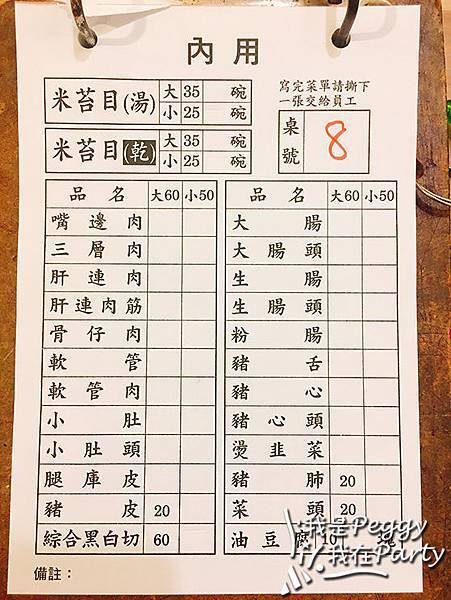 內用
米苔目(湯) 大 35 碗
小 25 碗
米苔目(乾) 大 35 碗
小 25 碗
寫完菜單請撕下
一張交給員工
桌號 8
品名 大60 小50
嘴邊肉
三層肉
肝連肉
肝連肉筋
骨仔肉
軟管
軟管肉
小肚
小肚頭
腿庫皮
豬皮 20
綜合黑白切 60
備註：
品名 大60 小50
大腸
大腸頭
生腸
生腸頭
粉腸
豬舌
豬心
豬心頭
燙韭菜
豬肺 20
菜頭 20
油豆腐 10
我是Peggy
我在Party